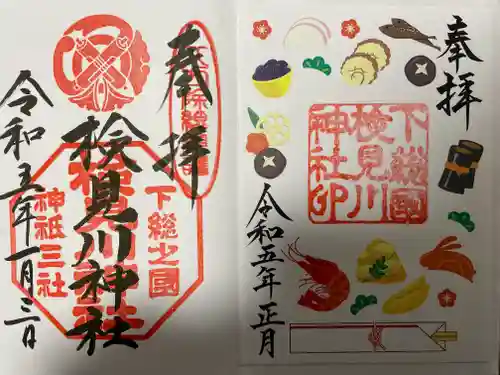 奉拝
下總之國
検見川神社
神祇三社
令和五年一月三日
奉拝
下総國
検見川
神社印
令和五年 正月